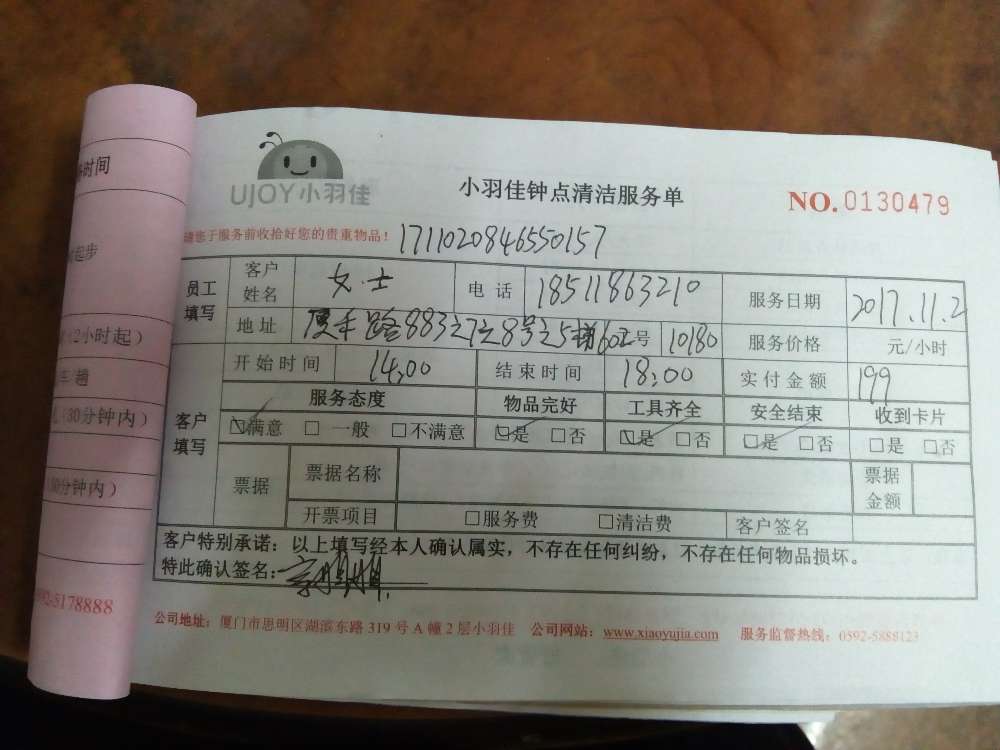 UJOY小羽佳
小羽佳钟点清洁服务单
NO.0130479
请您于服务前收拾好您的贵重物品！ 1711020846550157
员工填写 客户姓名 女士 电话 18511863210 服务日期 2017.11.2
地址 883之7之8号之5 602号 10180 服务价格 元/小时
客户填写 开始时间 14:00 结束时间 18:00 实付金额 199
服务态度 物品完好 工具齐全 安全结束 收到卡片
☑满意 □一般 □不满意 ☑是 □否 ☑是 □否 ☑是 □否 □是 □否
票据 票据名称 票据金额
开票项目 □服务费 □清洁费 客户签名
客户特别承诺：以上填写经本人确认属实，不存在任何纠纷，不存在任何物品损坏。
特此确认签名：
公司地址：厦门市思明区湖滨东路 319 号 A 幢 2 层小羽佳 公司网站：www.xiaoyujia.com 服务监督热线：0592-5888123
时间
起步
（2小时起）
车/趟
（30分钟内）
30分钟内）
92-5178888